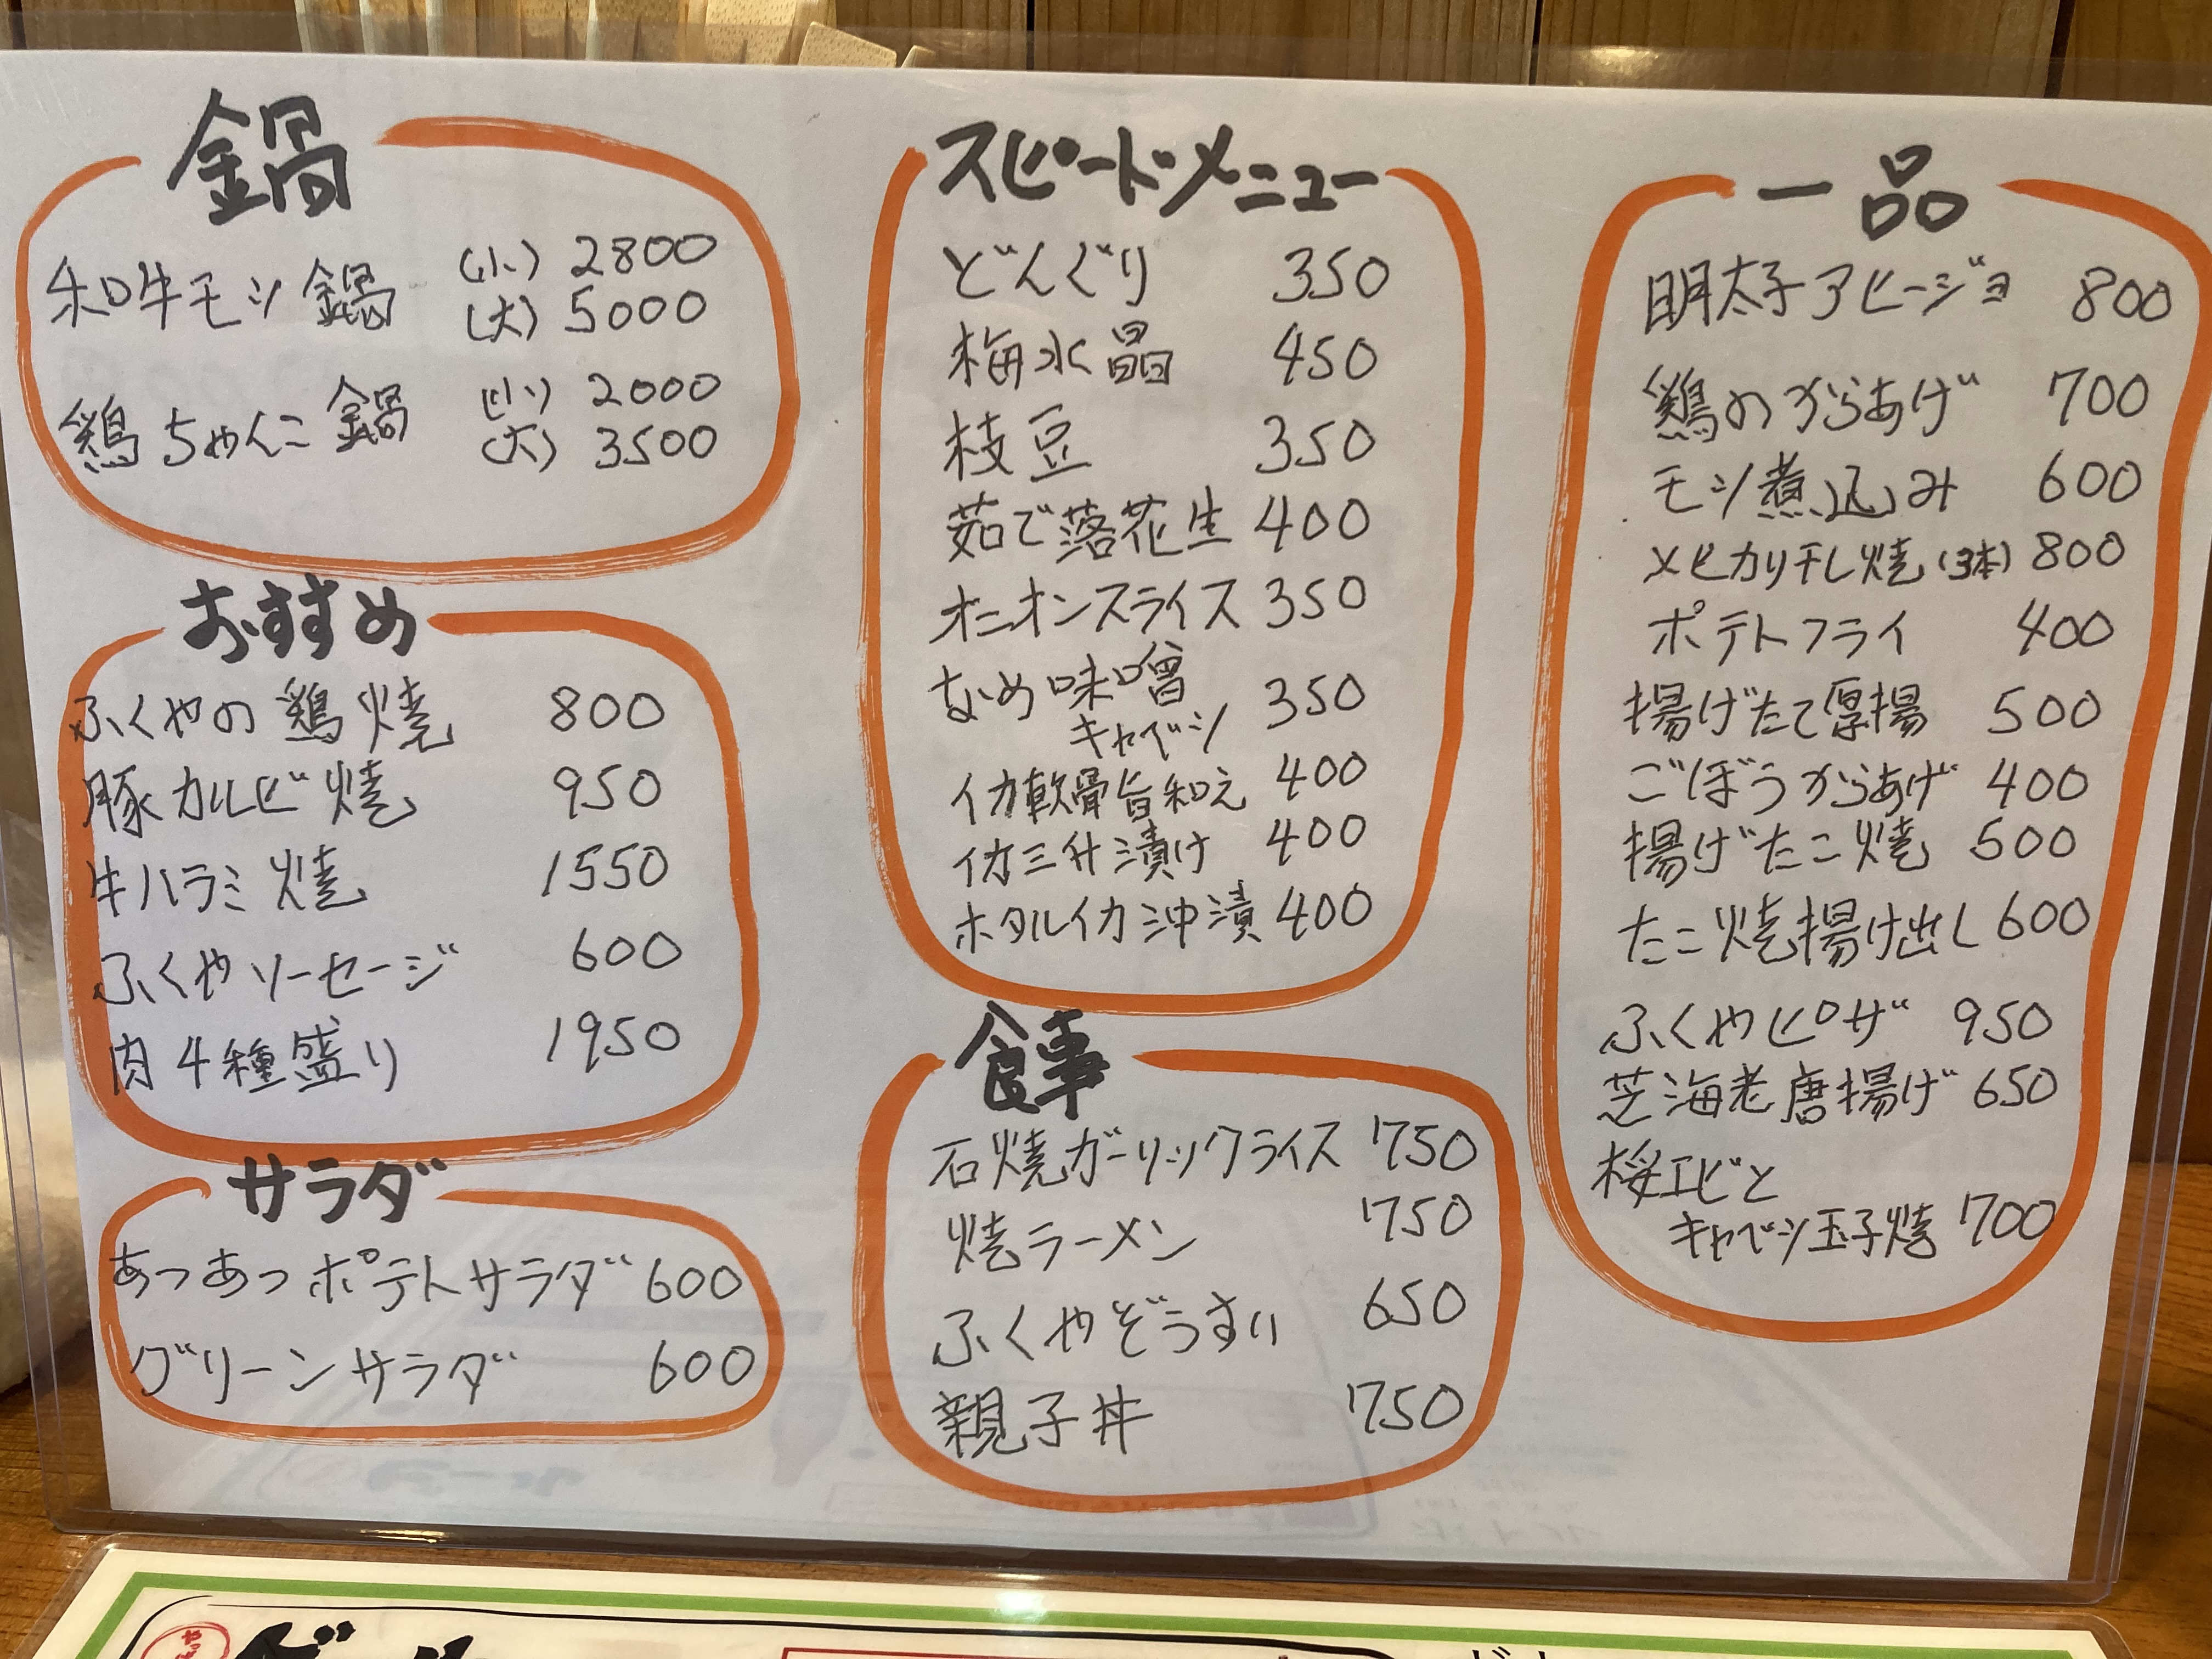 鍋
和牛モツ鍋 (小) 2800
(大) 5000
鶏ちゃんこ鍋 (小) 2000
(大) 3500
おすすめ
ふくやの鶏焼 800
豚カルビ焼 950
牛ハラミ焼 1550
ふくやソーセージ 600
肉4種盛り 1950
サラダ
あつあつポテトサラダ 600
グリーンサラダ 600
スピードメニュー
どんぐり 350
梅水晶 450
枝豆 350
茹で落花生 400
オニオンスライス 350
なめ味噌
キャベツ 350
イカ軟骨旨和え 400
イカ三升漬け 400
ホタルイカ沖漬 400
食事
石焼ガーリックライス 750
焼ラーメン 750
ふくやぞうすい 650
親子丼 750
一品
明太子アヒージョ 800
鶏のからあげ 700
モツ煮込み 600
メヒカリ干し焼(3本) 800
ポテトフライ 400
揚げたて厚揚 500
ごぼうからあげ 400
揚げたこ焼 500
たこ焼揚げ出し 600
ふくやピザ 950
芝海老唐揚げ 650
桜エビと
キャベツ玉子焼 700